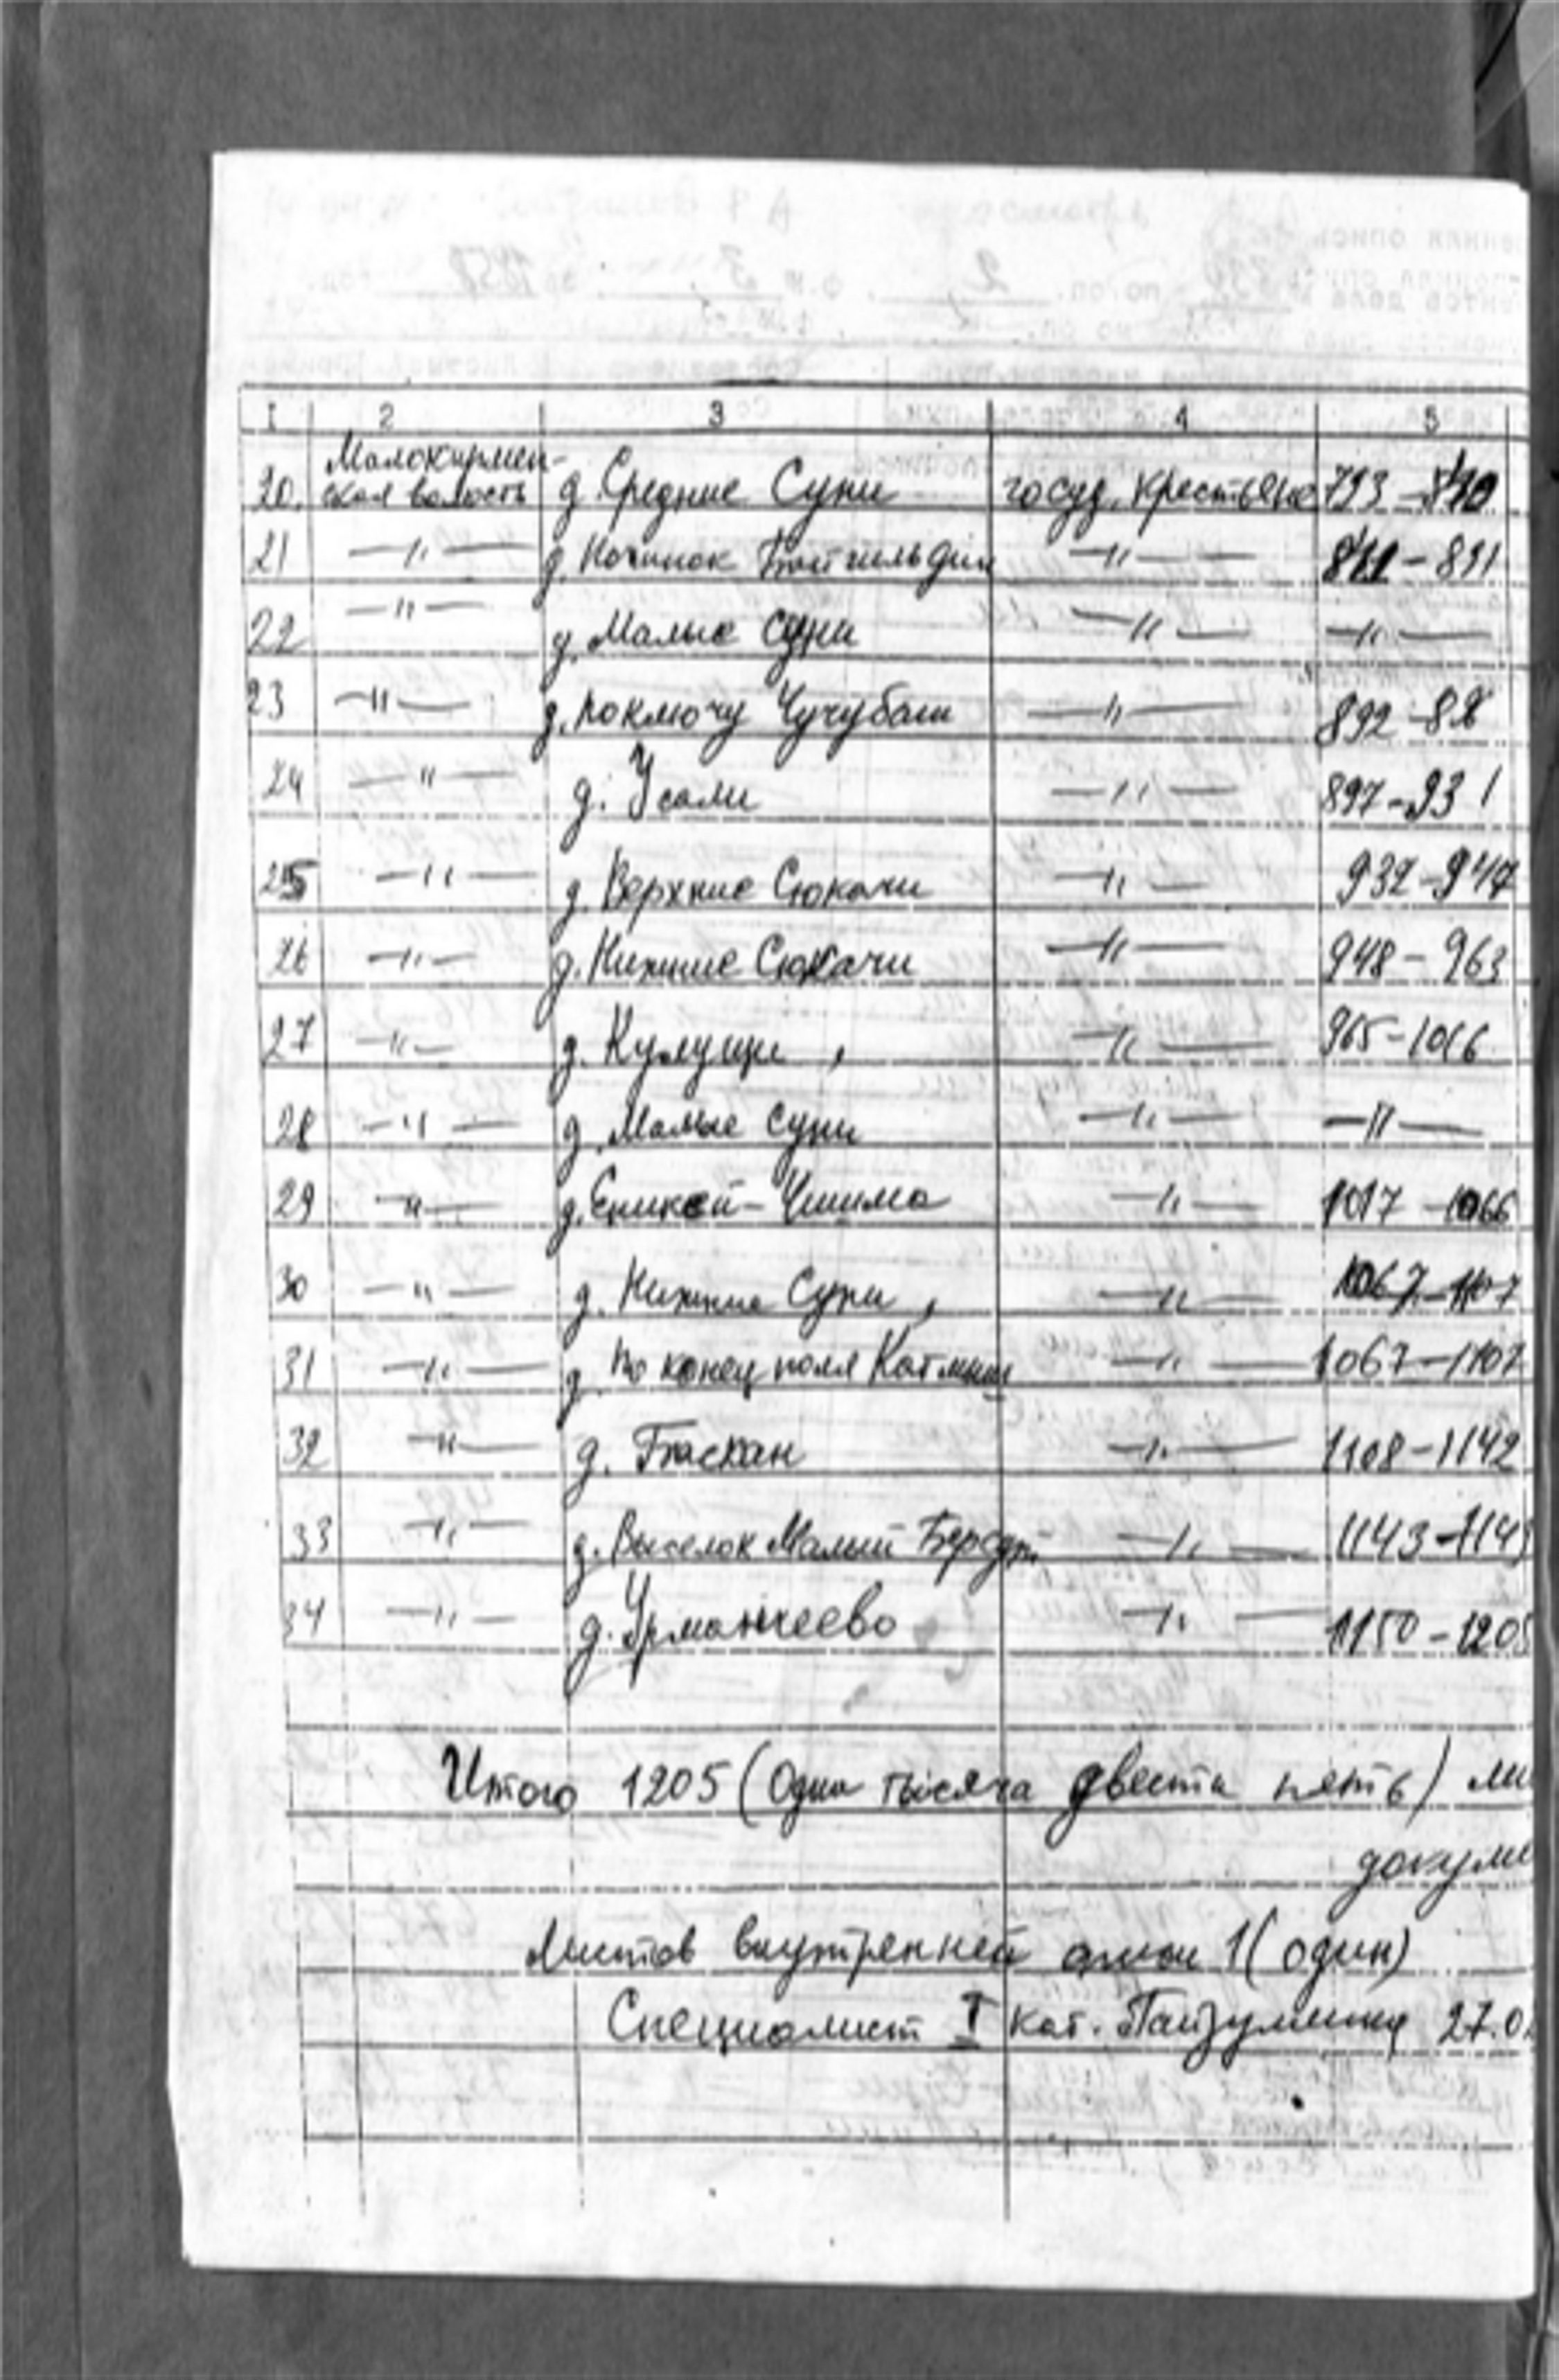 1 2 3 4 5
Малокирмен-
20. ская волость д. Средние Суни госуд. крестьяне 793 - 840
21 —"— д. Починок Байгильдин —"— 841 - 891
22 —"— д. Малые Суни —"— —"—
23 —"— д. по ключу Чучубаш —"— 892
24 —"— д. Усали —"— 897 - 931
25 —"— д. Верхние Сюкачи —"— 932 - 947
26 —"— д. Нижние Сюкачи —"— 948 - 963
27 —"— д. Кулущи, —"— 965 - 1016
28 —"— д. Малые Суни —"— —"—
29 —"— д. Еникей-Чишма —"— 1017 - 1066
30 —"— д. Нижние Суни, —"— 1067 - 1107
31 —"— д. по конец поля Катмыш —"— 1067 - 1107
32 —"— д. Баскан —"— 1108 - 1142
33 —"— д. Выселок Малый —"— 1143 - 114
34 —"— д. Урманчеево —"— 1150 - 1205
Итого 1205 (Одна тысяча двести пять) ли
докуме
Листов внутренней описи 1 (один)
Специалист I кат. 27.0